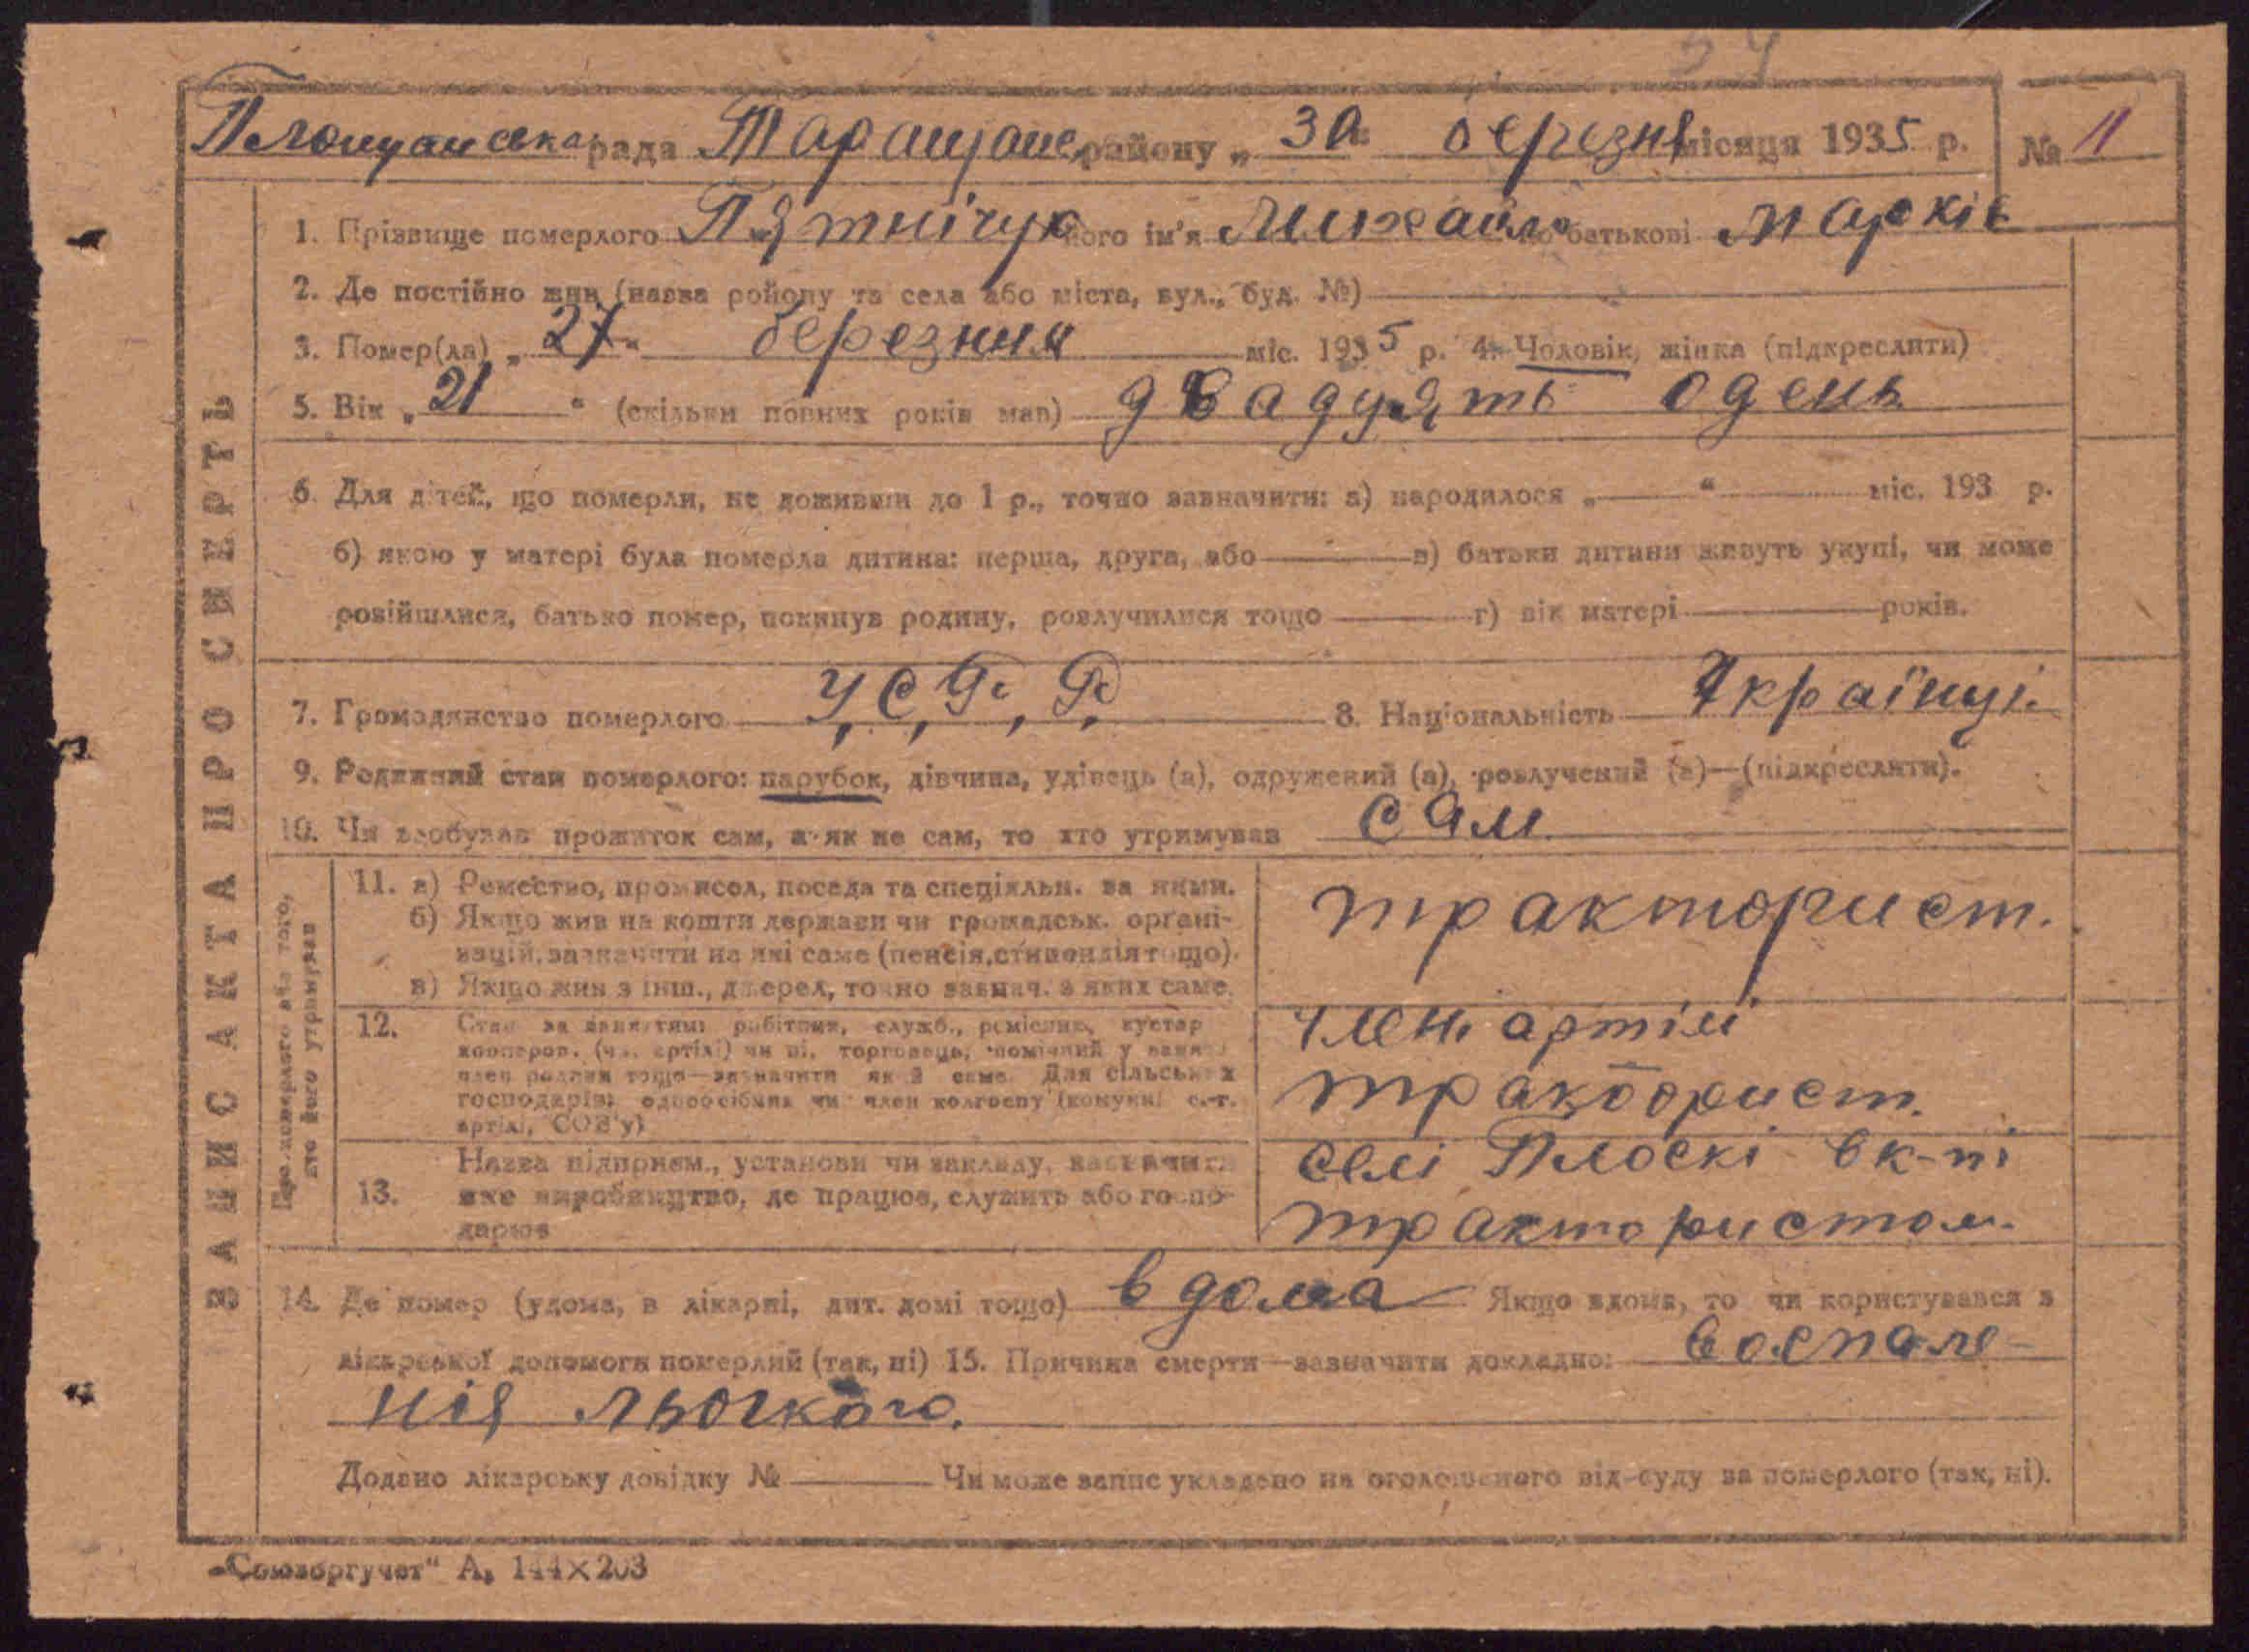 34
Площанська рада Таращанс. району „ 30 " березня місяця 1935 р. № 11
1. Прізвище померлого П'ятнічук його ім'я Михайло по батькові Марків
2. Де постійно жив (назва району та села або міста, вул., буд. №)
3. Помер(ла) „ 27 " березння міс. 1935 р. 4. Чоловік, жінка (підкреслити)
5. Вік „ 21 " (скільки повних років мав) двадцять одень
6. Для дітей, що померли, не доживши до 1 р., точно зазначити: а) народилося „ " міс. 193 р.
б) якою у матері була померла дитина: перша, друга, або в) батьки дитини живуть укупі, чи може
розійшлися, батько помер, покинув родину, розлучилися тощо г) вік матері років.
7. Громадянство померлого У.С.Р.Р. 8. Національність Українці
9. Родинний стан померлого: парубок, дівчина, удівець (а), одружений (а), розлучений (а)—(підкреслити).
10. Чи здобував прожиток сам, а як не сам, то хто утримував сам
ЗАПИС АКТА ПРО СМЕРТЬ
Про померлого або того,
хто його утримував
11. а) Ремество, промисел, посада та спеціяльн. за ними.
б) Якщо жив на кошти держави чи громадськ. органі-
зацій, зазначити на які саме (пенсія, стипендія тощо).
в) Якщо жив з інш., джерел, точно зазнач. з яких саме.
тракторист.
12. Стан за заняттям: робітник, служб., ремісник, кустар
кооперов. (чл. артілі) чи ні, торговець, помічний у занят.
член родини тощо—зазначити як й саме. Для сільських
господарів: одноосібник чи член колгоспу (комуни с.-г.
артілі, СОЗ'у)
член артілі
тракторист.
13. Назва підприєм., установи чи закладу, зазначити
яке виробництво, де працює, служить або госпо-
дарює
селі Плоскі в к-пі
трактористом.
14. Де помер (удома, в лікарні, дит. домі тощо) в дома Якщо вдома, то чи користувався з
лікарської допомоги померлий (так, ні) 15. Причина смерти—зазначити докладно: воспале-
нія льогкого.
Додано лікарську довідку № Чи може запис укладено на оголошеного від суду за померлого (так, ні).
„Союзоргучет" А₅ 144×203